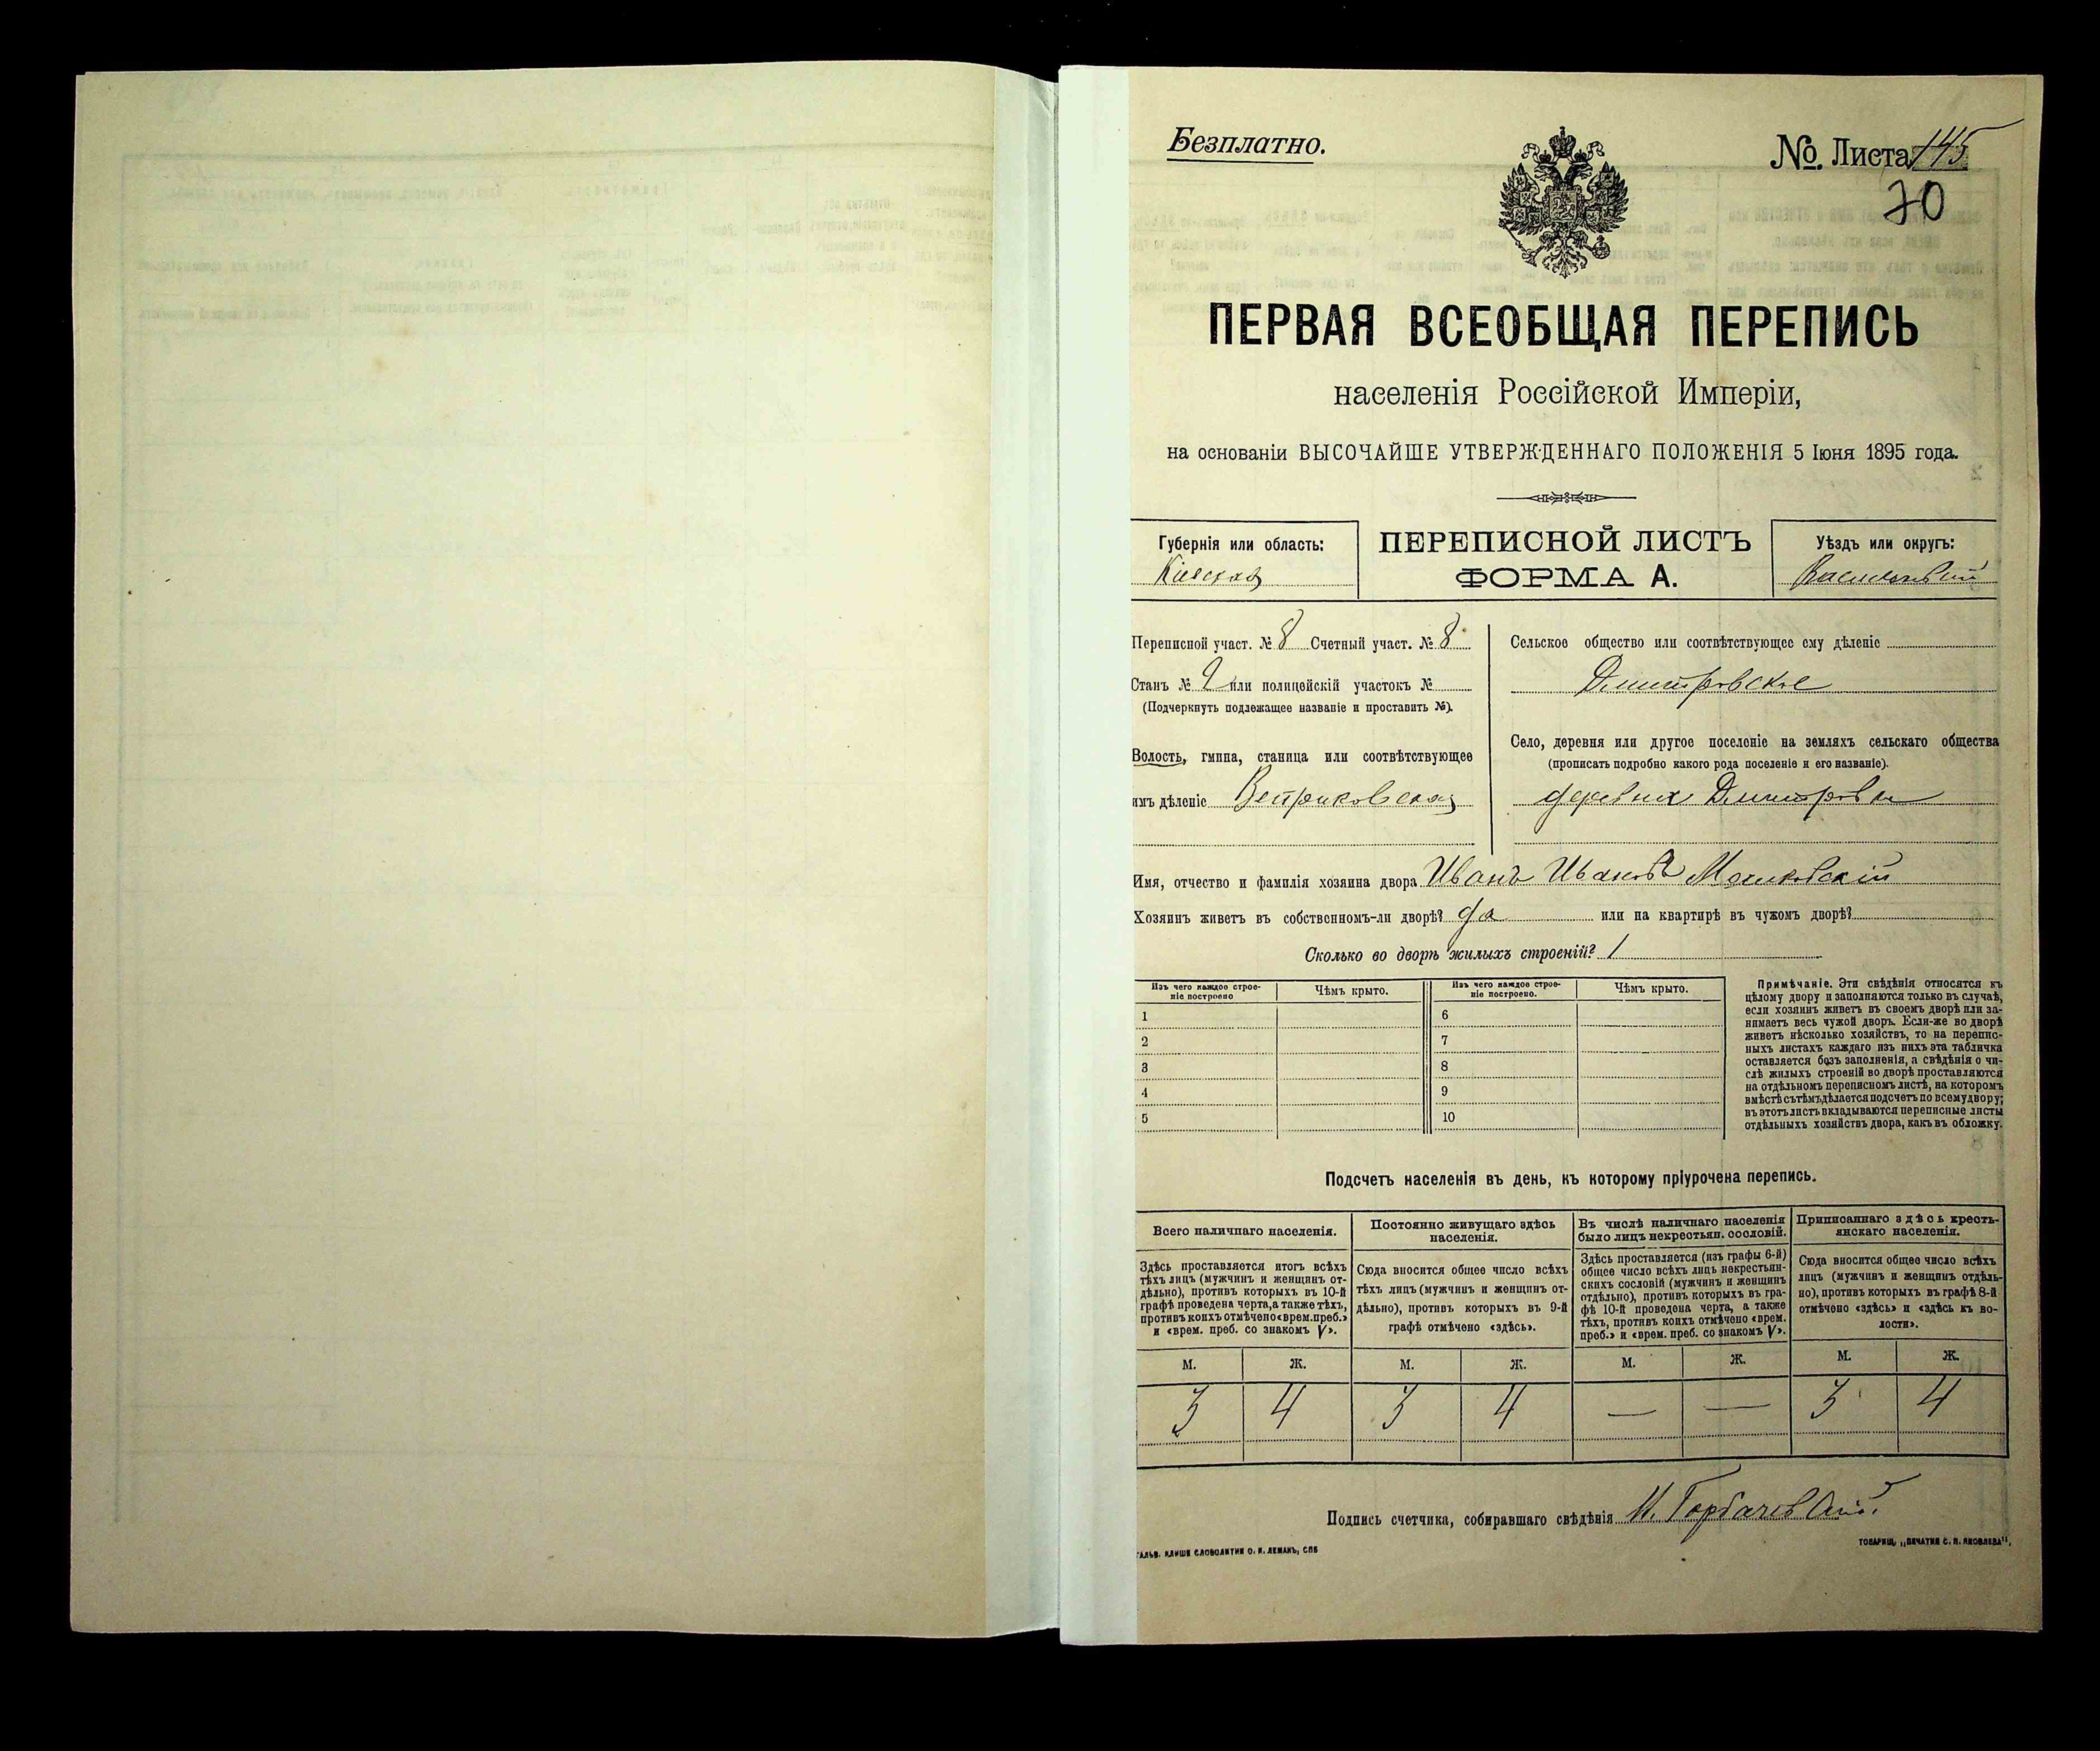 Безплатно.
№ Листа 145
70
ПЕРВАЯ ВСЕОБЩАЯ ПЕРЕПИСЬ
населенія Россійской Имперіи,
на основаніи ВЫСОЧАЙШЕ УТВЕРЖДЕННАГО ПОЛОЖЕНІЯ 5 Іюня 1895 года.
Губернія или область:
Кіевская
ПЕРЕПИСНОЙ ЛИСТЪ
ФОРМА А.
Уѣздъ или округъ:
Васильковскій
Переписной участ. № 8 Счетный участ. № 8
Станъ № 2 или полицейскій участокъ №
(Подчеркнуть подлежащее названіе и проставить №).
Волость, гмина, станица или соотвѣтствующее
имъ дѣленіе Ветриковская
Сельское общество или соотвѣтствующее ему дѣленіе
Дмитровское
Село, деревня или другое поселеніе на земляхъ сельскаго общества
(прописать подробно какого рода поселеніе и его названіе).
деревня Дмитровка
Имя, отчество и фамилія хозяина двора Иванъ Ивановъ
Хозяинъ живетъ въ собственномъ-ли дворѣ? да или на квартирѣ въ чужомъ дворѣ?
Сколько во дворѣ жилыхъ строеній? 1
Изъ чего каждое строе-
ніе построено
Чѣмъ крыто.
Изъ чего каждое строе-
ніе построено.
Чѣмъ крыто.
1 6
2 7
3 8
4 9
5 10
Примѣчаніе. Эти свѣдѣнія относятся къ
цѣлому двору и заполняются только въ случаѣ,
если хозяинъ живетъ въ своемъ дворѣ или за-
нимаетъ весь чужой дворъ. Если-же во дворѣ
живетъ нѣсколько хозяйствъ, то на перепис-
ныхъ листахъ каждаго изъ нихъ эта табличка
оставляется безъ заполненія, а свѣдѣнія о чи-
слѣ жилыхъ строеній во дворѣ проставляются
на отдѣльномъ переписномъ листѣ, на которомъ
вмѣстѣ съ тѣмъ дѣлается подсчетъ по всему двору;
въ этотъ листъ вкладываются переписные листы
отдѣльныхъ хозяйствъ двора, какъ въ обложку.
Подсчетъ населенія въ день, къ которому пріурочена перепись.
Всего наличнаго населенія.
Здѣсь проставляется итогъ всѣхъ
тѣхъ лицъ (мужчинъ и женщинъ от-
дѣльно), противъ которыхъ въ 10-й
графѣ проведена черта, а также тѣхъ,
противъ коихъ отмѣчено «врем. преб.»
и «врем. преб. со знакомъ V».
Постоянно живущаго здѣсь
населенія.
Сюда вносится общее число всѣхъ
тѣхъ лицъ (мужчинъ и женщинъ от-
дѣльно), противъ которыхъ въ 9-й
графѣ отмѣчено «здѣсь».
Въ числѣ наличнаго населенія
было лицъ некрестьян. сословій.
Здѣсь проставляется (изъ графы 6-й)
общее число всѣхъ лицъ некрестьян-
скихъ сословій (мужчинъ и женщинъ
отдѣльно), противъ которыхъ въ гра-
фѣ 10-й проведена черта, а также
тѣхъ, противъ коихъ отмѣчено «врем.
преб.» и «врем. преб. со знакомъ V».
Приписаннаго здѣсь кресть-
янскаго населенія.
Сюда вносится общее число всѣхъ
лицъ (мужчинъ и женщинъ отдѣль-
но), противъ которыхъ въ графѣ 8-й
отмѣчено «здѣсь» и «здѣсь къ во-
лости».
М. Ж. М. Ж. М. Ж. М. Ж.
3 4 3 4 — — 3 4
Подпись счетчика, собиравшаго свѣдѣнія И. Горбачевскій.
ГАЛЬВ. КЛИШЕ СЛОВОЛИТНИ О. И. ЛЕМАНЪ, СПБ
ТОВАРИЩ. „ПЕЧАТНЯ С. П. ЯКОВЛЕВА".